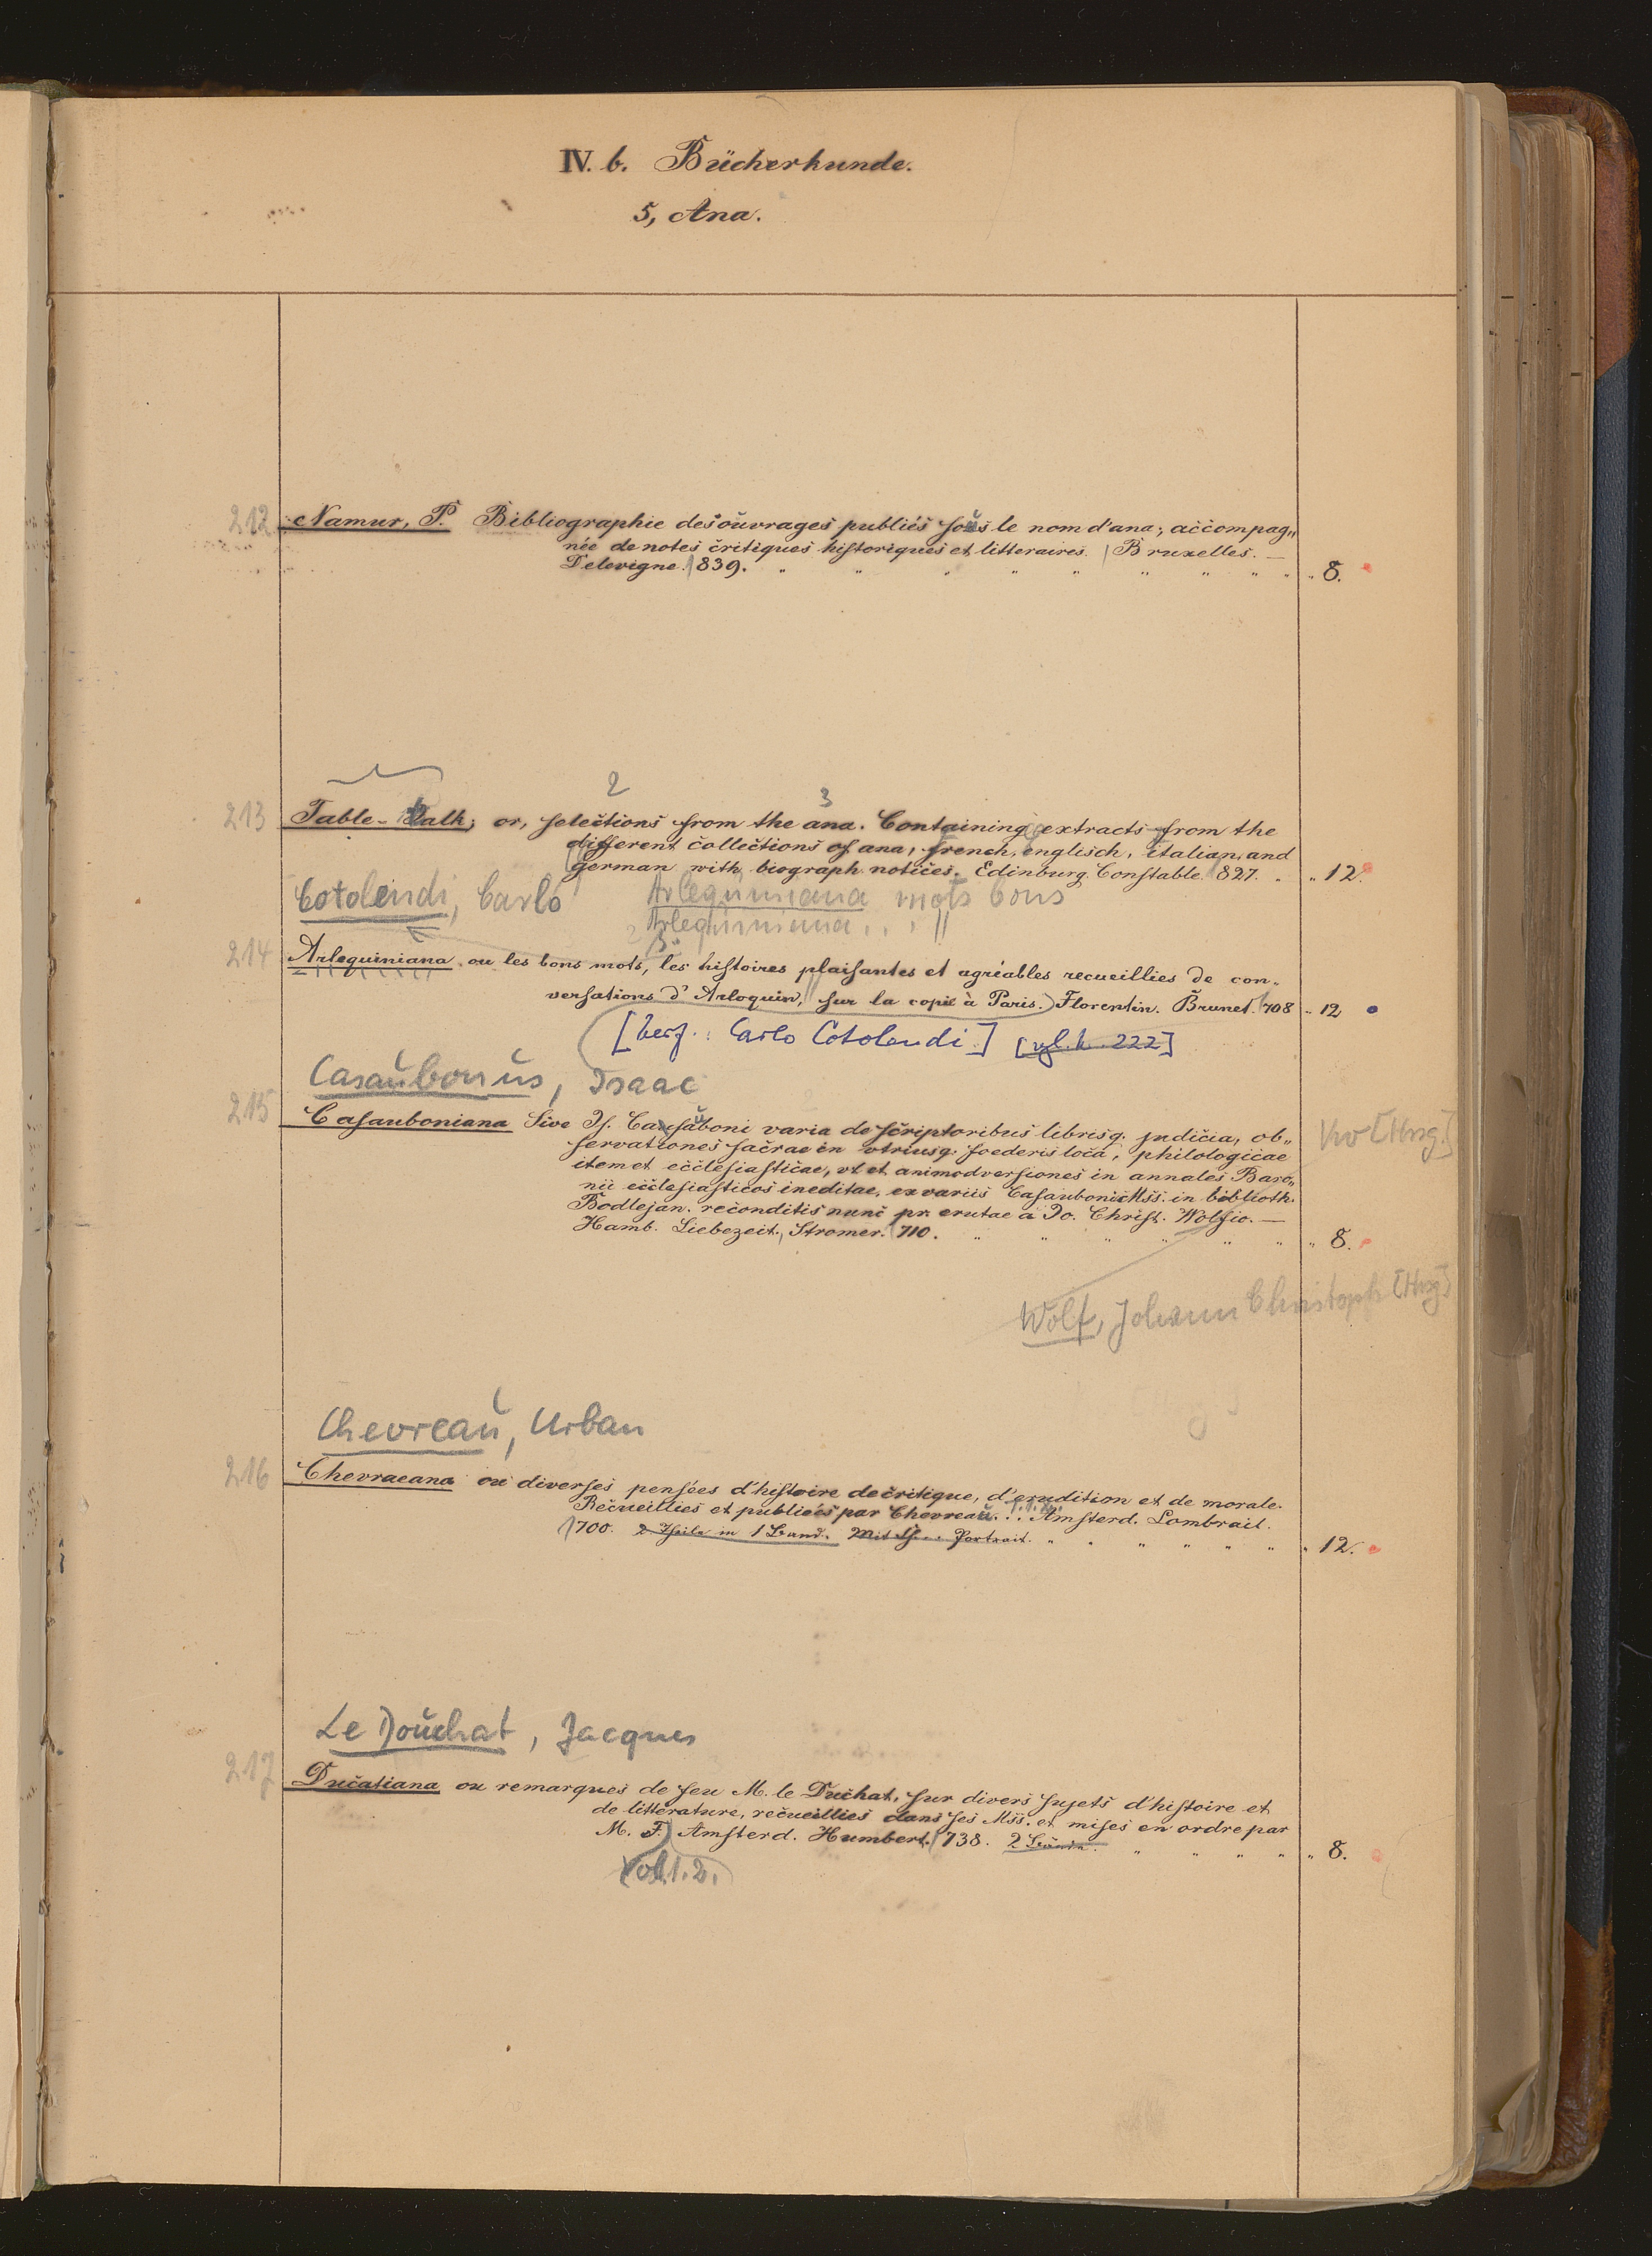 IV. b. Bücherkunde.
5, Ana.
212 Namur, P. Bibliographie des ouvrages publiés sous le nom d'ana; accompag„
née de notes critiques historiques et litteraires. | Bruxelles. —
Televigne. 1839. „ 8.
2 3
213 Table-Talk; or, selections from the ana. Containing extracts from the
different collections of ana, french, englisch, italian, and
german with biograph. notices. Edinburg. Constable. 1827. „ 12.
Cotolendi, Carlo Arlequiniana mots bons
Arlequiniana . . . ||
214 Arlequiniana ou les bons mots, les histoires plaisantes et agréables recueillies de con„
versations d'Arloquin, sur la copie à Paris.) Florentin. Brunet. 1708 „ 12
[Verf.: Carlo Cotolendi] [vgl. h. 222]
Casaubonus, Isaac
215 Casauboniana Sive Is. Casauboni varia de scriptoribus librisq. judicia, ob„
servationes sacrae in utriusq. foederis loca, philologicae
item et ecclesiasticae, ut et animadversiones in annales Baro„
nii ecclesiasticos ineditae, ex variis Casauboni Mss. in biblioth.
Bodlejan. reconditis nunc pr. erutae a Jo. Christ. Wolfio. —
Hamb. Liebezeit, Stromer. 1710. „ 8.
Vw [Hrsg.]
Wolf, Johann Christoph [Hrsg]
Chevreau, Urban
216 Chevraeana ou diverses pensées d'histoire de critique, d'erudition et de morale.
Recueillies et publiées par Chevreau. 1. 2. Amsterd. Lombrail.
1700. 2 Theile in 1 Band. Mit Portrait. „ 12.
Le Douchat, Jacques
217 Ducatiana ou remarques de feu M. le Duchat, sur divers sujets d'histoire et
de litterature, recueillies dans ses Mss. et mises en ordre par
M. F.) Amsterd. Humbert. 1738. 2 Bände. „ 8.
Vol. 1. 2.